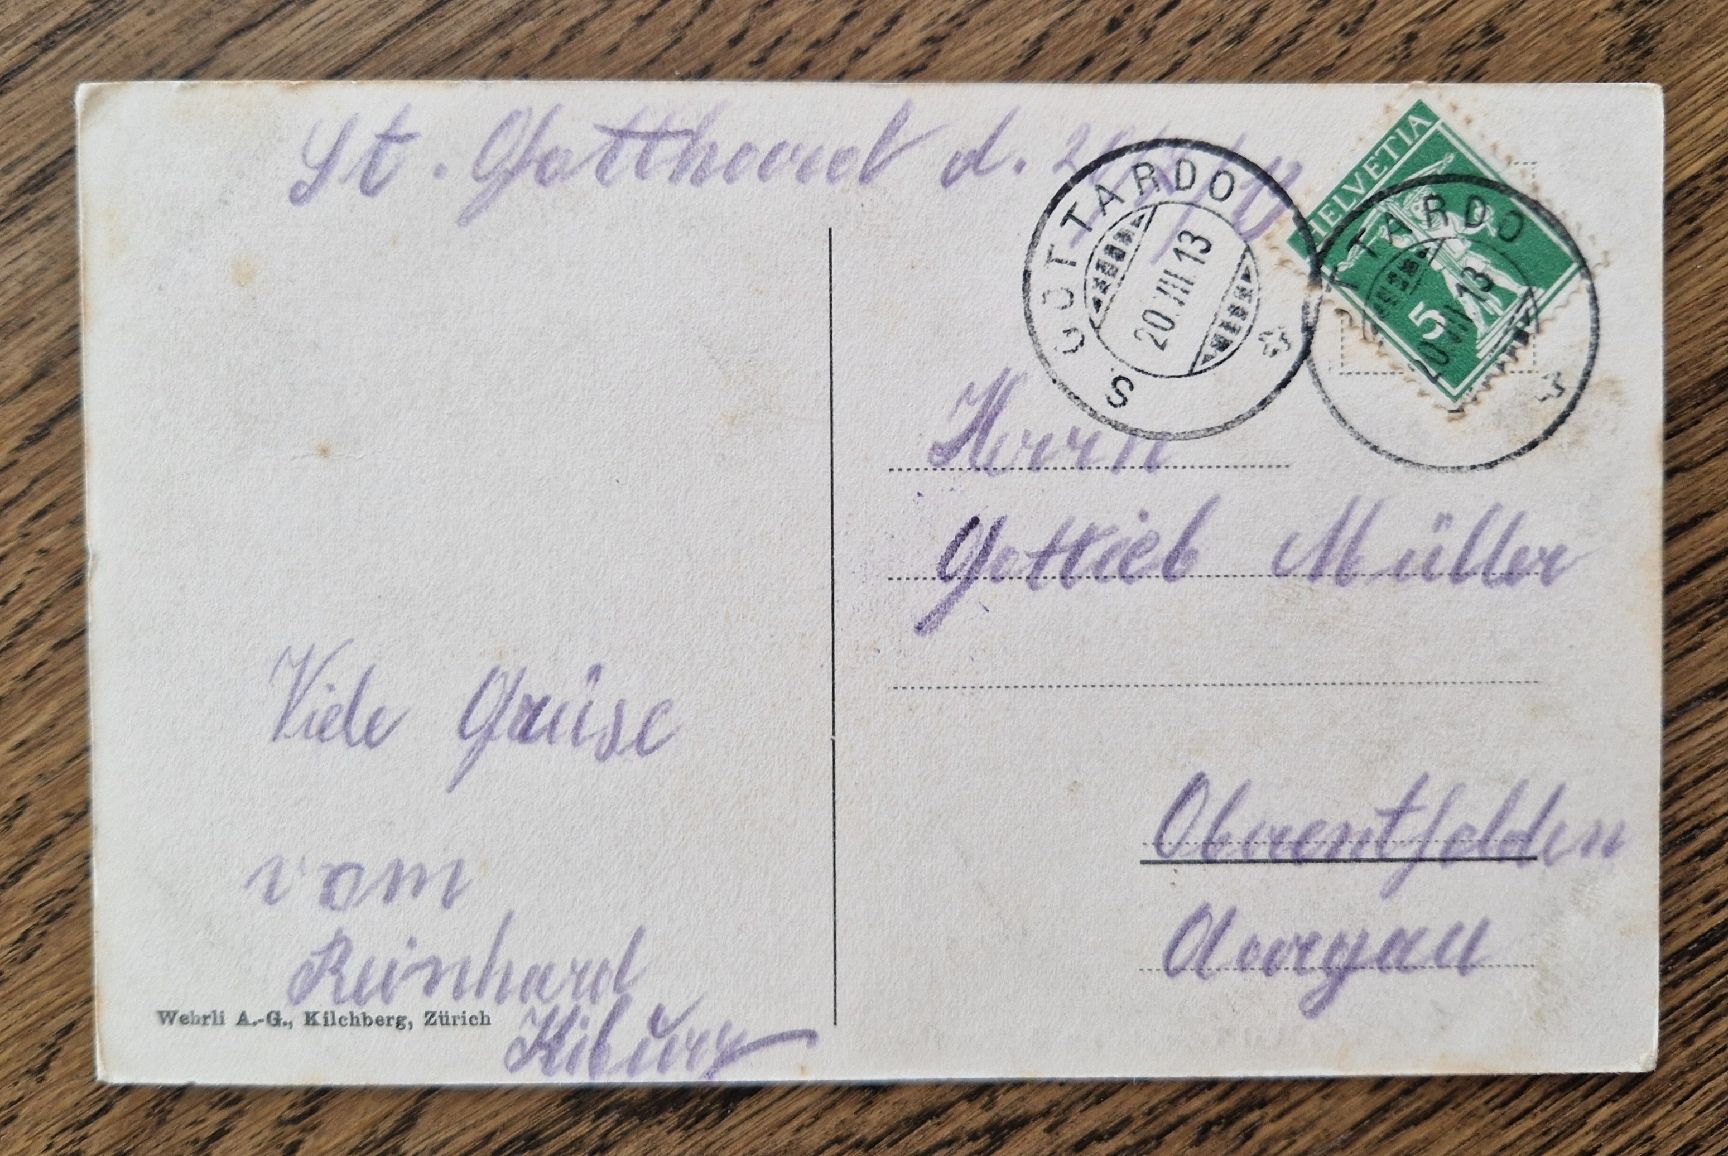 St. Gotthard d.
S. GOTTARDO
20.VII 13
HELVETIA
5
TTARDO
13
Herrn
Gottlieb Müller
Oberentfelden
Aargau
Viele Grüse
vom
Reinhard
Kiburz
Wehrli A.-G., Kilchberg, Zürich